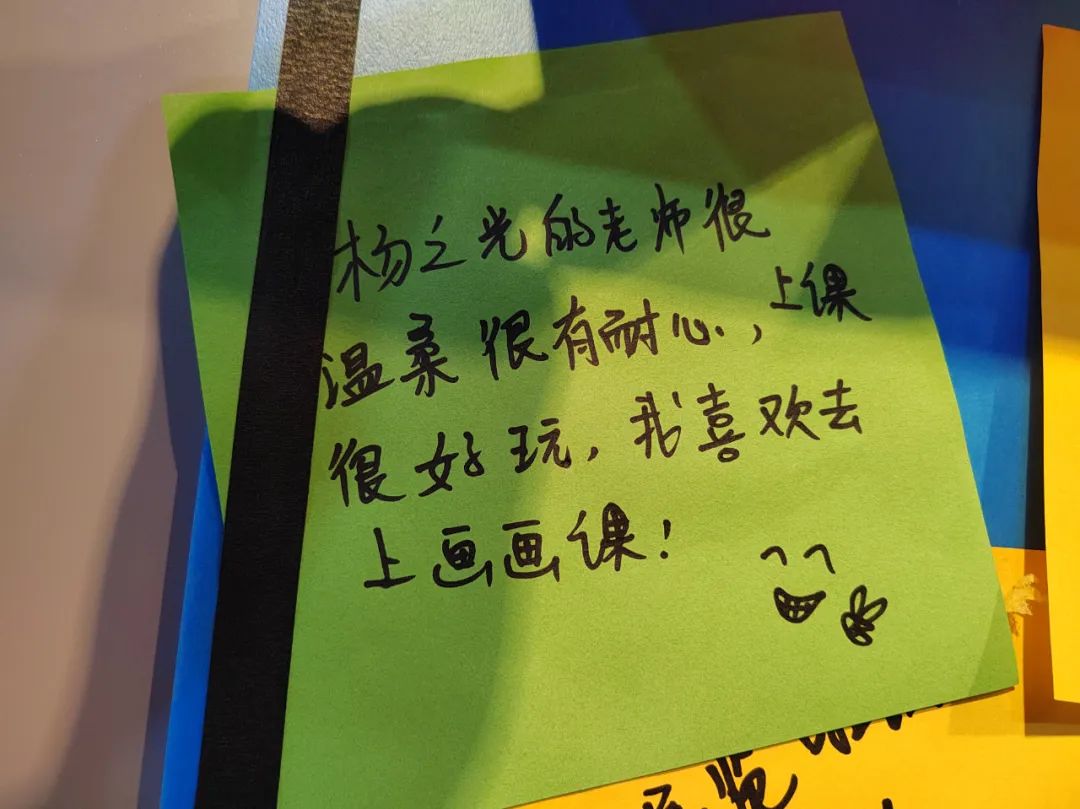 杨之光的老师很
温柔很有耐心,上课
很好玩,我喜欢去
上画画课!